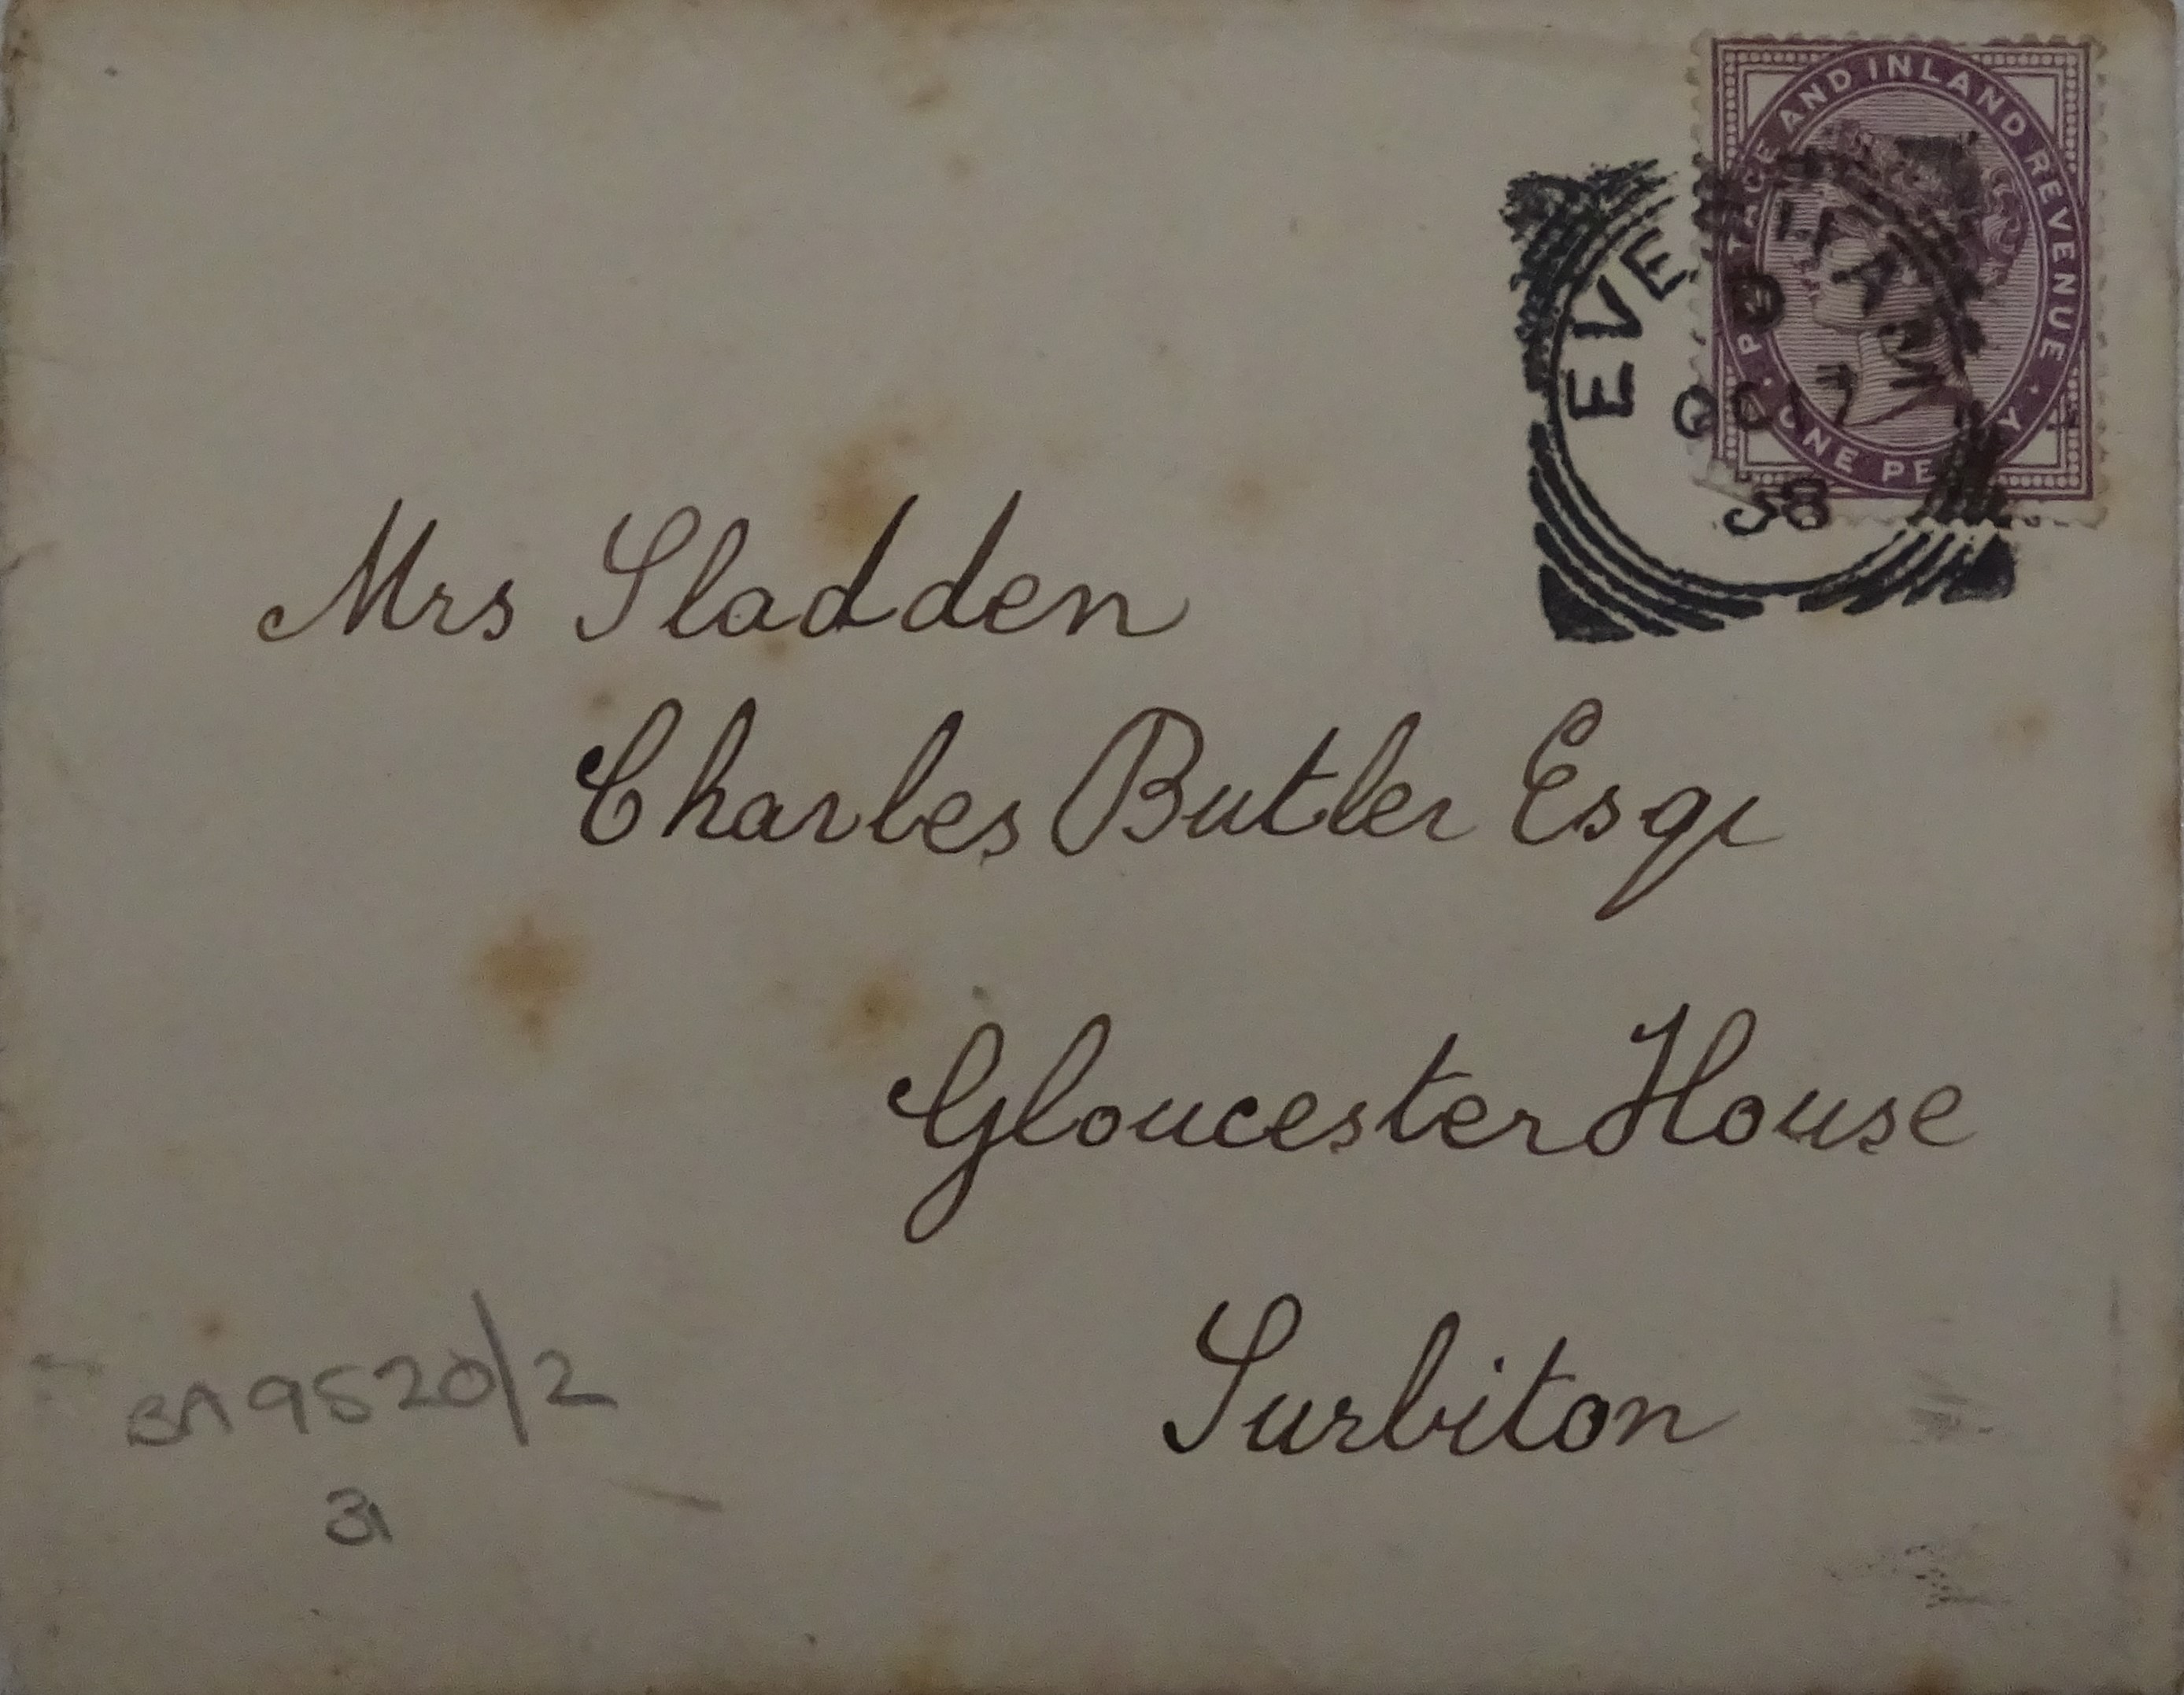 POSTAGE AND INLAND REVENUE
ONE PENNY
EVESHAM
OC 17
98
Mrs Sladden
Charles Butler Esqr
Gloucester House
Surbiton
BA9520/2
31